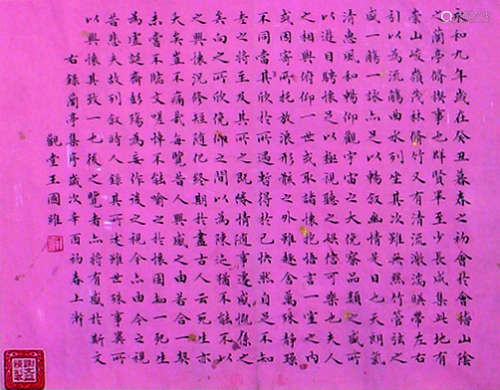 永和九年歲在癸丑暮春之初會於會稽山陰
之蘭亭脩禊事也羣賢畢至少長咸集此地有
崇山峻嶺茂林脩竹又有清流激湍暎帶左右
引以為流觴曲水列坐其次雖無絲竹管弦之
盛一觴一詠亦足以暢敘幽情是日也天朗氣
清惠風和暢仰觀宇宙之大俯察品類之盛所
以遊目騁懷足以極視聽之娛信可樂也夫人
之相與俯仰一世或取諸懷抱悟言一室之內
或因寄所託放浪形骸之外雖趣舍萬殊靜躁
不同當其欣於所遇暫得於己快然自足不知
老之將至及其所之既倦情隨事遷感慨係之
矣向之所欣俛仰之間以為陳迹猶不能不以
之興懷況脩短隨化終期於盡古人云死生亦
大矣豈不痛哉每覽昔人興感之由若合一契
未嘗不臨文嗟悼不能喻之於懷固知一死生
為虛誕齊彭殤為妄作後之視今亦由今之視
昔悲夫故列敘時人錄其所述雖世殊事異所
以興懷其致一也後之覽者亦將有感於斯文
右錄蘭亭集序歲次辛酉初春上澣
觀堂王國維